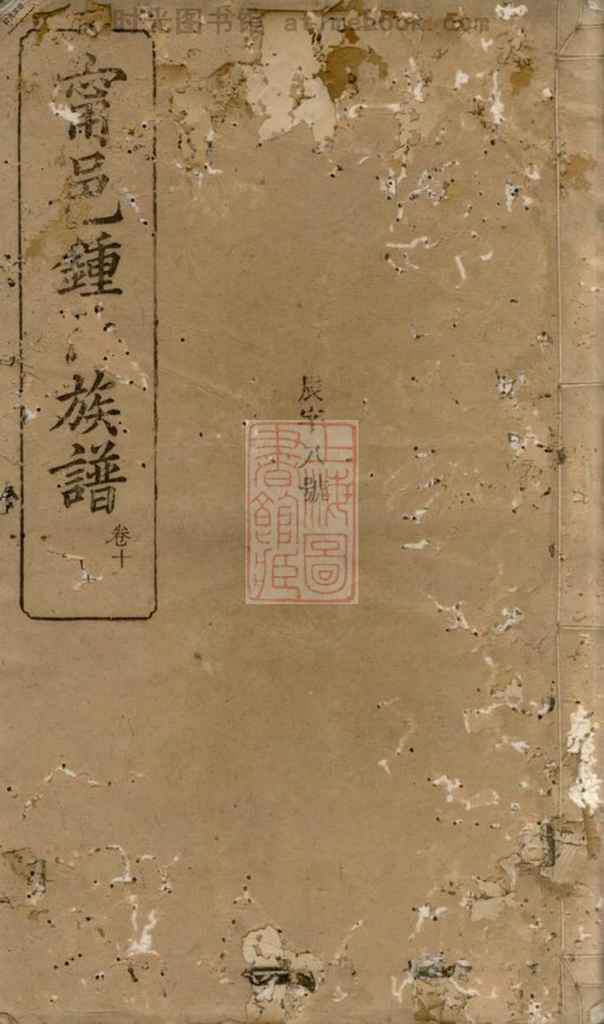 时光图书馆 atimebook.com
甯邑鍾
族譜
卷十
辰字八號
上海圖
書館藏